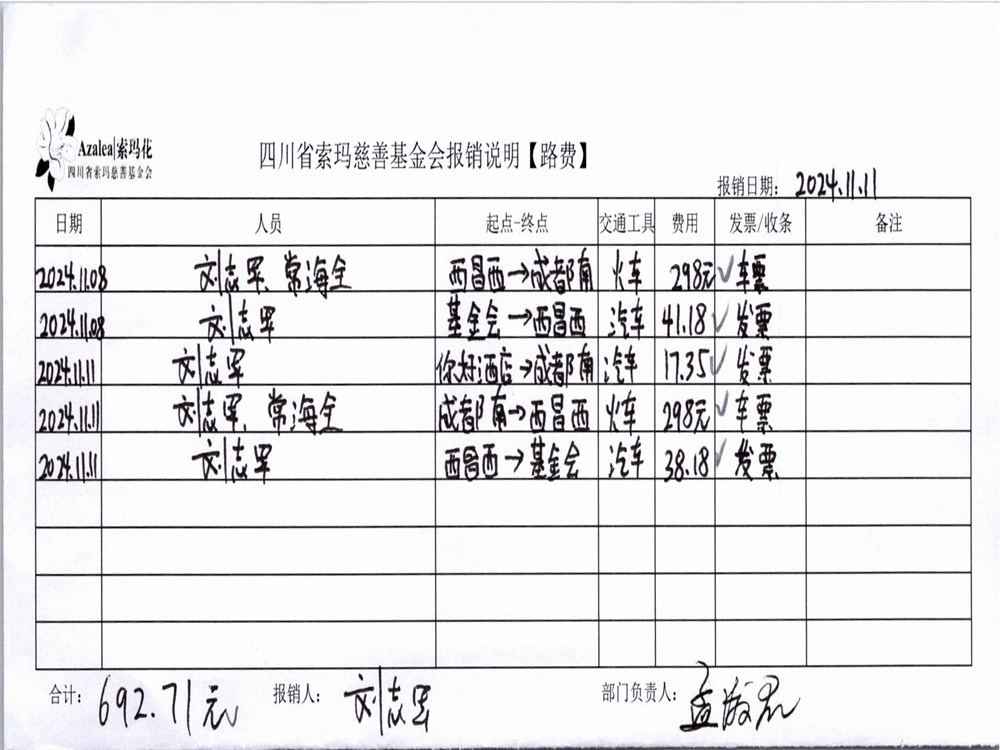 Azalea|索玛花
四川省索玛慈善基金会
四川省索玛慈善基金会报销说明【路费】
报销日期: 2024.11.11
日期 人员 起点-终点 交通工具 费用 发票/收条 备注
2024.11.08 刘志军、常海全 西昌西→成都南 火车 298元 ✓车票
2024.11.08 刘志军 基金会→西昌西 汽车 41.18 ✓发票
2024.11.11 刘志军 你好酒店→成都南 汽车 17.35 ✓发票
2024.11.11 刘志军、常海全 成都南→西昌西 火车 298元 ✓车票
2024.11.11 刘志军 西昌西→基金会 汽车 38.18 ✓发票
合计: 692.71元 报销人: 刘志军 部门负责人: